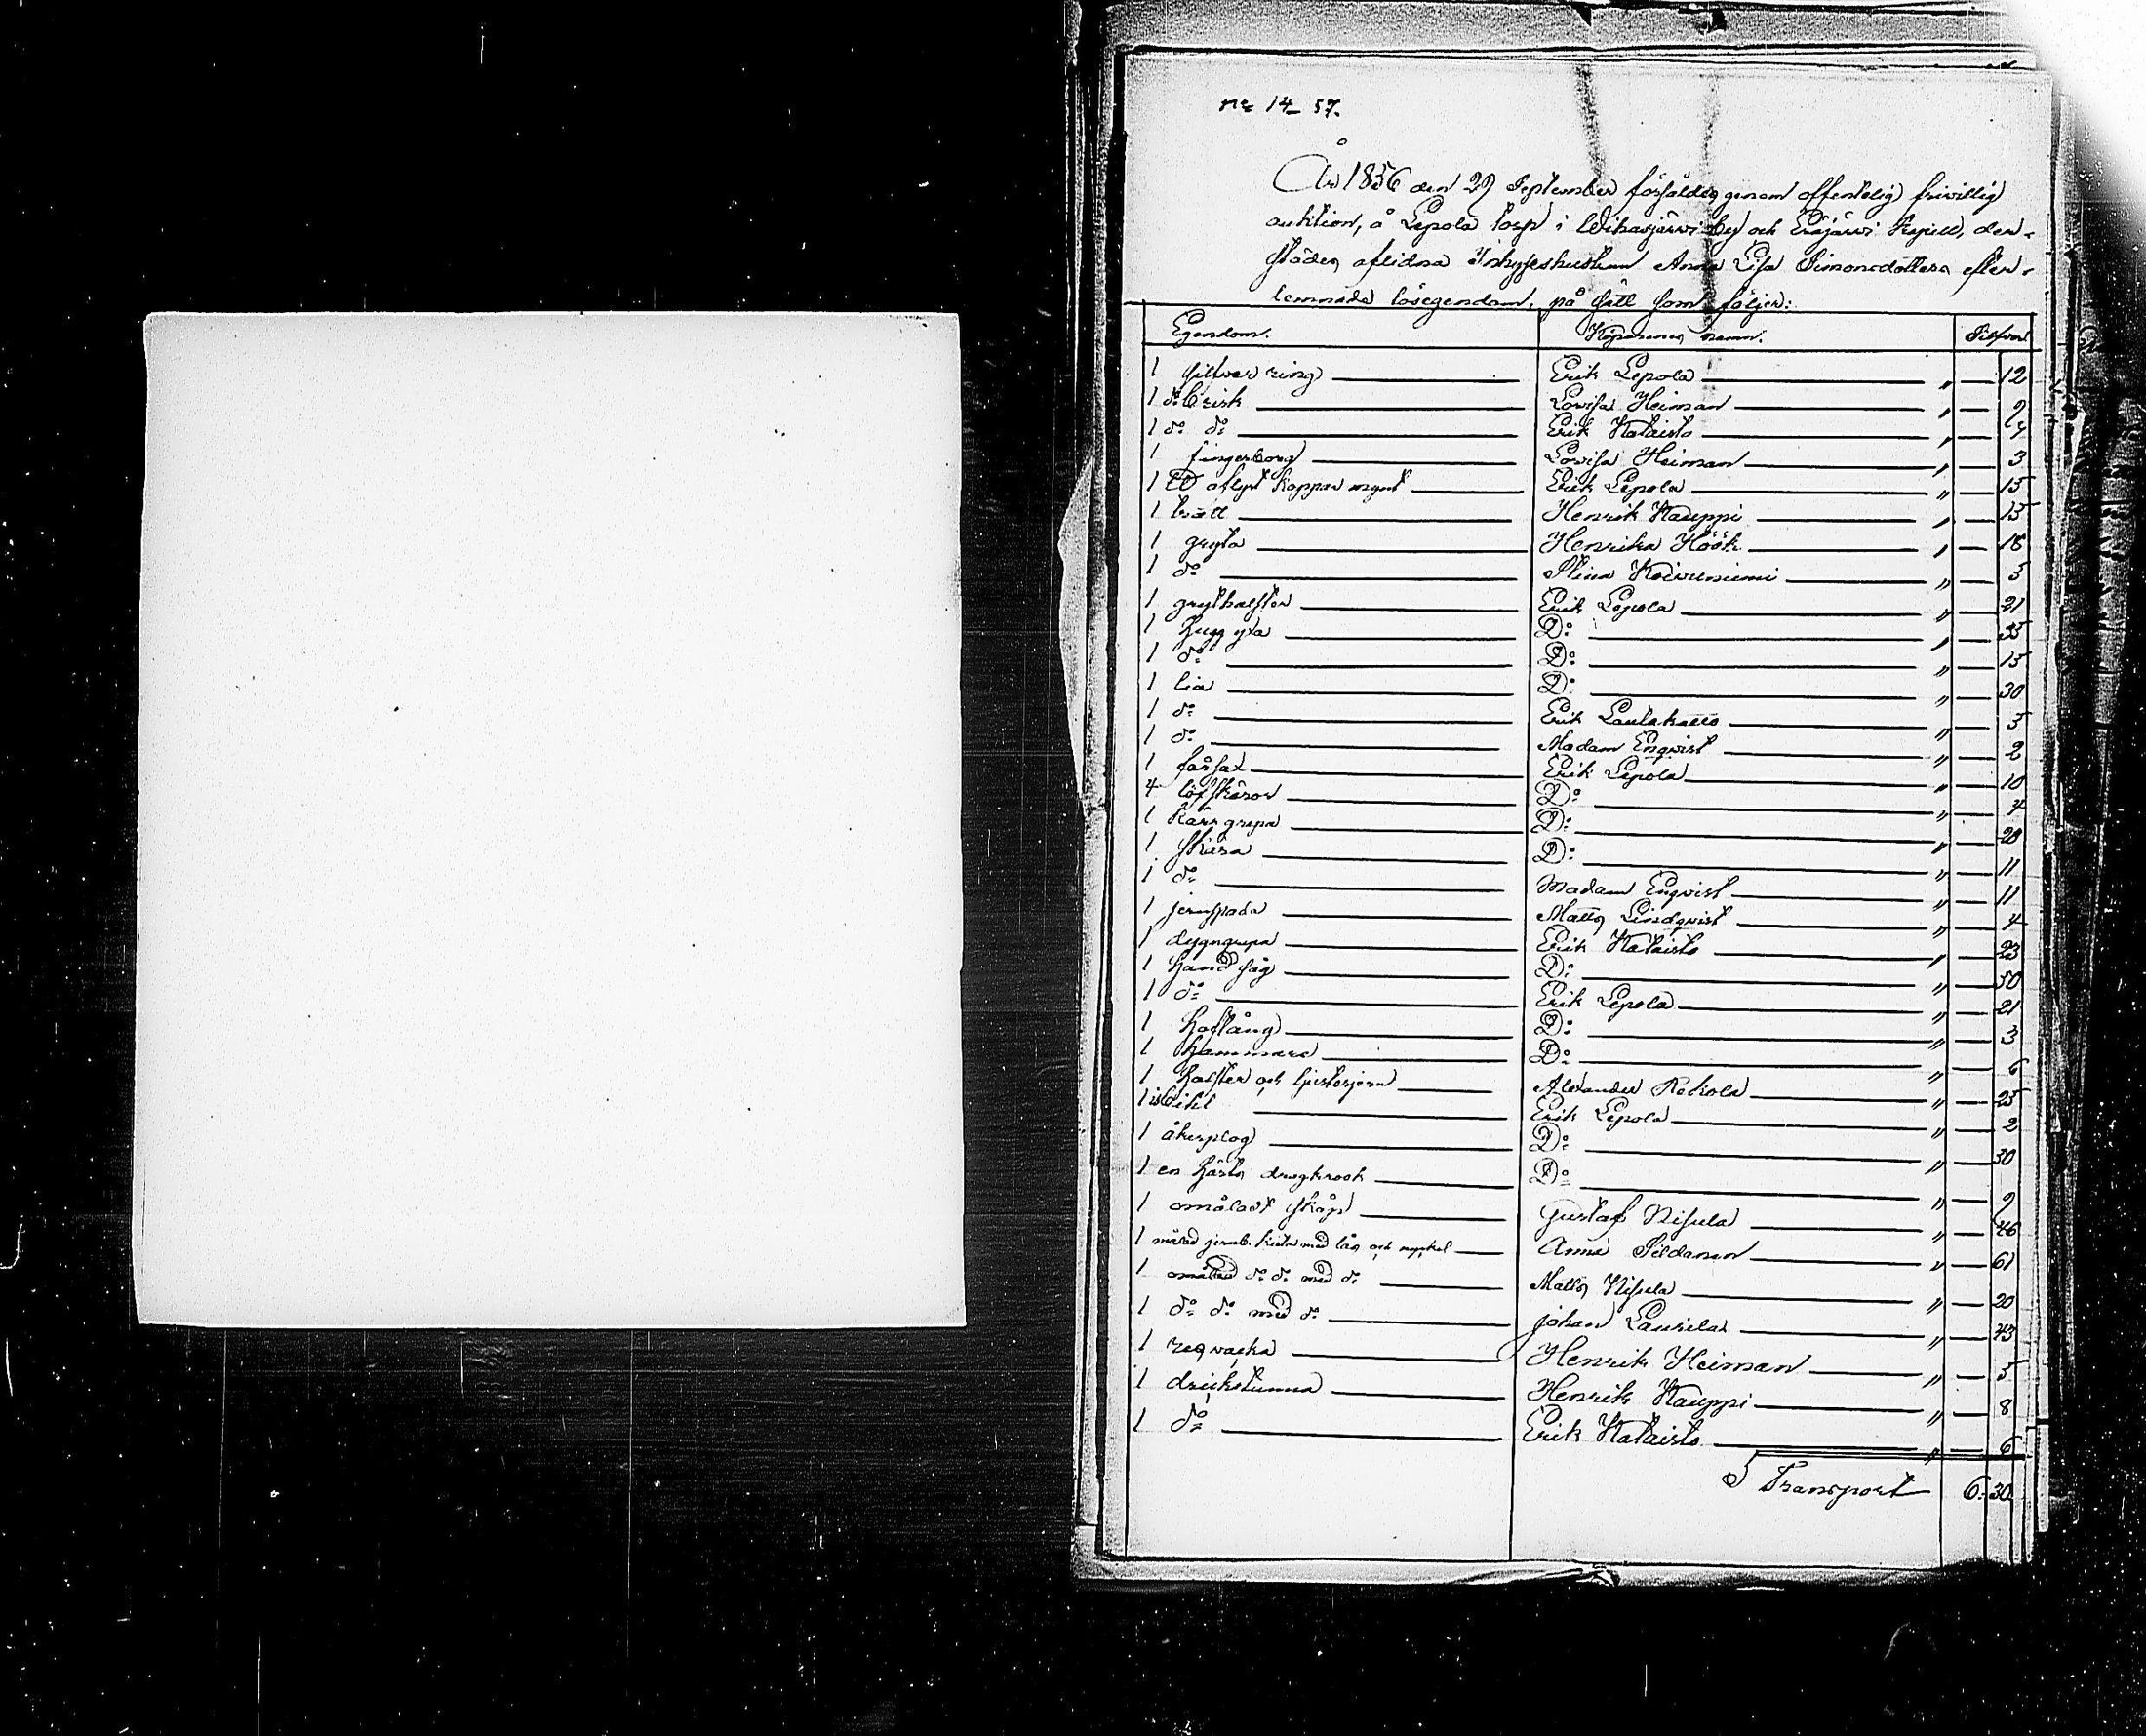 No 14_ 57.
År 1856 den 29 September försåldes genom offentelig frivillig
auktion, å Lepola torp i Wihasjärwi by och Eräjärwi Kapell, der-
städes aflidna Inhyseshustrun Anna Lisa Simonsdotters efter-
lemnade lösegendom, på sätt som följer:
Egendom. Köparenes namn. Silfver
1 silfver ring Erik Lepola " 12
1 do brisk Lovisa Heiman " 9
1 do do Erik Hataisto " 7
1 fingerborg Lovisa Heiman " 3
1 aflyst koppar mynt Erik Lepola " 15
1 brätt Henrik Kauppi " 15
1 gryta Henrika Höök " 18
1 do Stina Koivuniemi " 5
1 grythalster Erik Lepola " 21
1 hugg yxa Do " 35
1 do Do " 15
1 lia Do " 30
1 do Erik Laulakallo " 5
1 do Madam Enqvist " 2
1 fårsax Erik Lepola " 10
4 löfskäror Do " 4
1 kärrgrepa Do " 20
1 skära Do " 11
1 do Madam Enqvist " 11
1 jernspada Matts Lindqvist " 4
1 dyngngrepa Erik Hataisto " 23
1 hand såg Do " 50
1 do Erik Lepola " 21
1 hoftång Do " 3
1 hammare Do " 6
1 halster och ljusterjern Alexander Rekola " 25
1 isbihl Erik Lepola " 2
1 åkerplog Do " 30
1 en hästs dragkrook Do " 9
1 omåladt skåp Gustaf Nisula " 46
1 målad jernb. kista med lås och nyckel Anna Sildanen " 61
1 omålad do do med do Matts Nisula " 20
1 do do med do Johan Laurila " 43
1 regvacka Henrik Heiman " 5
1 drickstunna Henrik Kauppi " 8
1 do Erik Hataisto " 6
Transport 6. 30